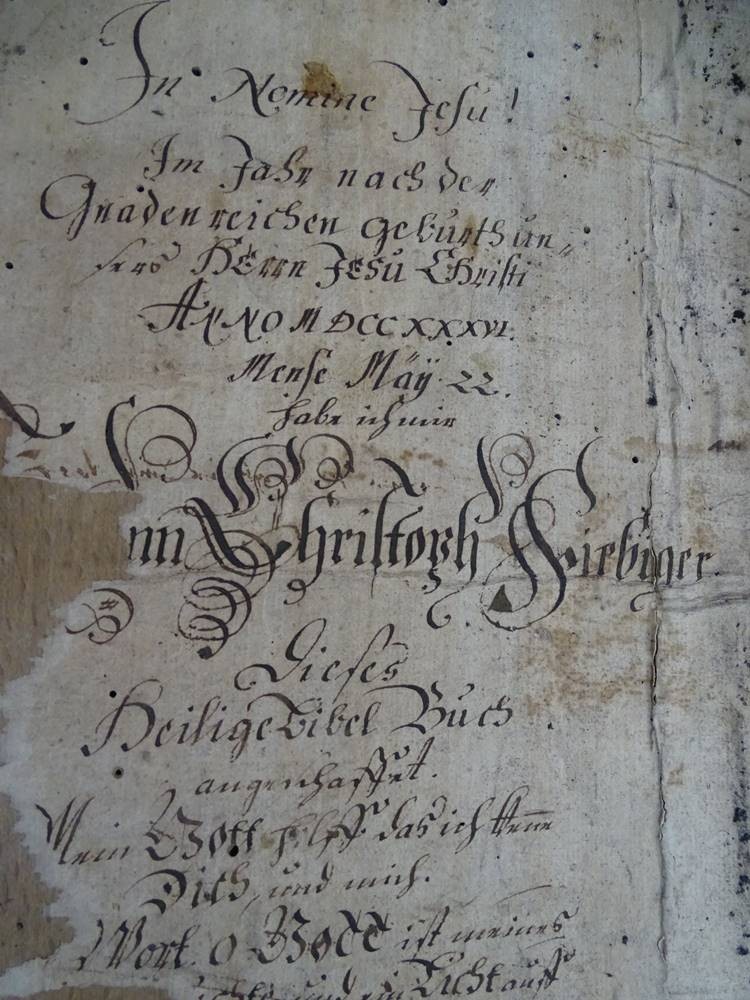 In Nomine Jesu!
Im Jahr nach der
Gnadenreichen Geburth un-
sers HErrn JESu CHristi
ANNO MDCCXXXVI.
Mense Mäÿ 22.
habe ich mir
nn Christoph Fiebiger
Dieses
Heilige Bibel Buch
angeschaffet.
Mein GOtt hilff das ich kenne
Dich und mich.
Wort o GOTT ist meines
und ein Licht auff